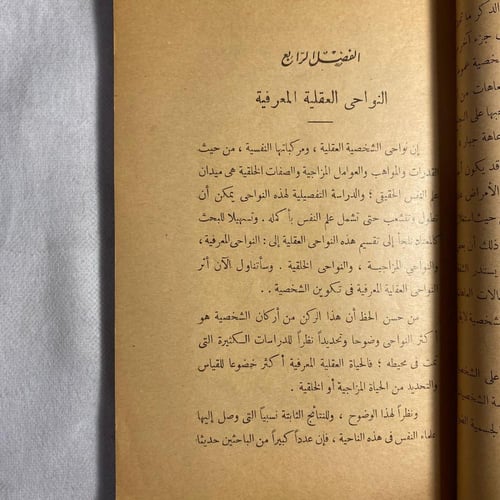 الفصل الرابع
النواحى العقلية المعرفية
إن نواحى الشخصية العقلية ، ومركباتها النفسية ، من حيث
القدرات والمواهب والعوامل المزاجية والصفات الخلقية هى ميدان
علم النفس الحقيقى ؛ والدراسة التفصيلية لهذه النواحى يمكن أن
تطول وتتشعب حتى تشمل علم النفس بأكمله . وتسهيلا للبحث
كالمعتاد نلجأ إلى تقسيم هذه النواحى العقلية إلى : النواحى المعرفية ،
والنواحي المزاجية ، والنواحى الخلقية . وسأتناول الآن أثر
النواحى العقلية المعرفية فى تكوين الشخصية . .
من حسن الحظ أن هذا الركن من أركان الشخصية هو
أكثر النواحى وضوحا وتحديداً نظراً للدراسات الكثيرة التى
تمت فى محيطه ؛ فالحياة العقلية المعرفية أكثر خضوعا للقياس
والتحديد من الحياة المزاجية أو الخلقية .
ونظراً لهذا الوضوح ، وللنتائج الثابتة نسبيًا التى وصل إليها
علماء النفس فى هذه الناحية ، فإن عدداً كبيراً من الباحثين حديثا